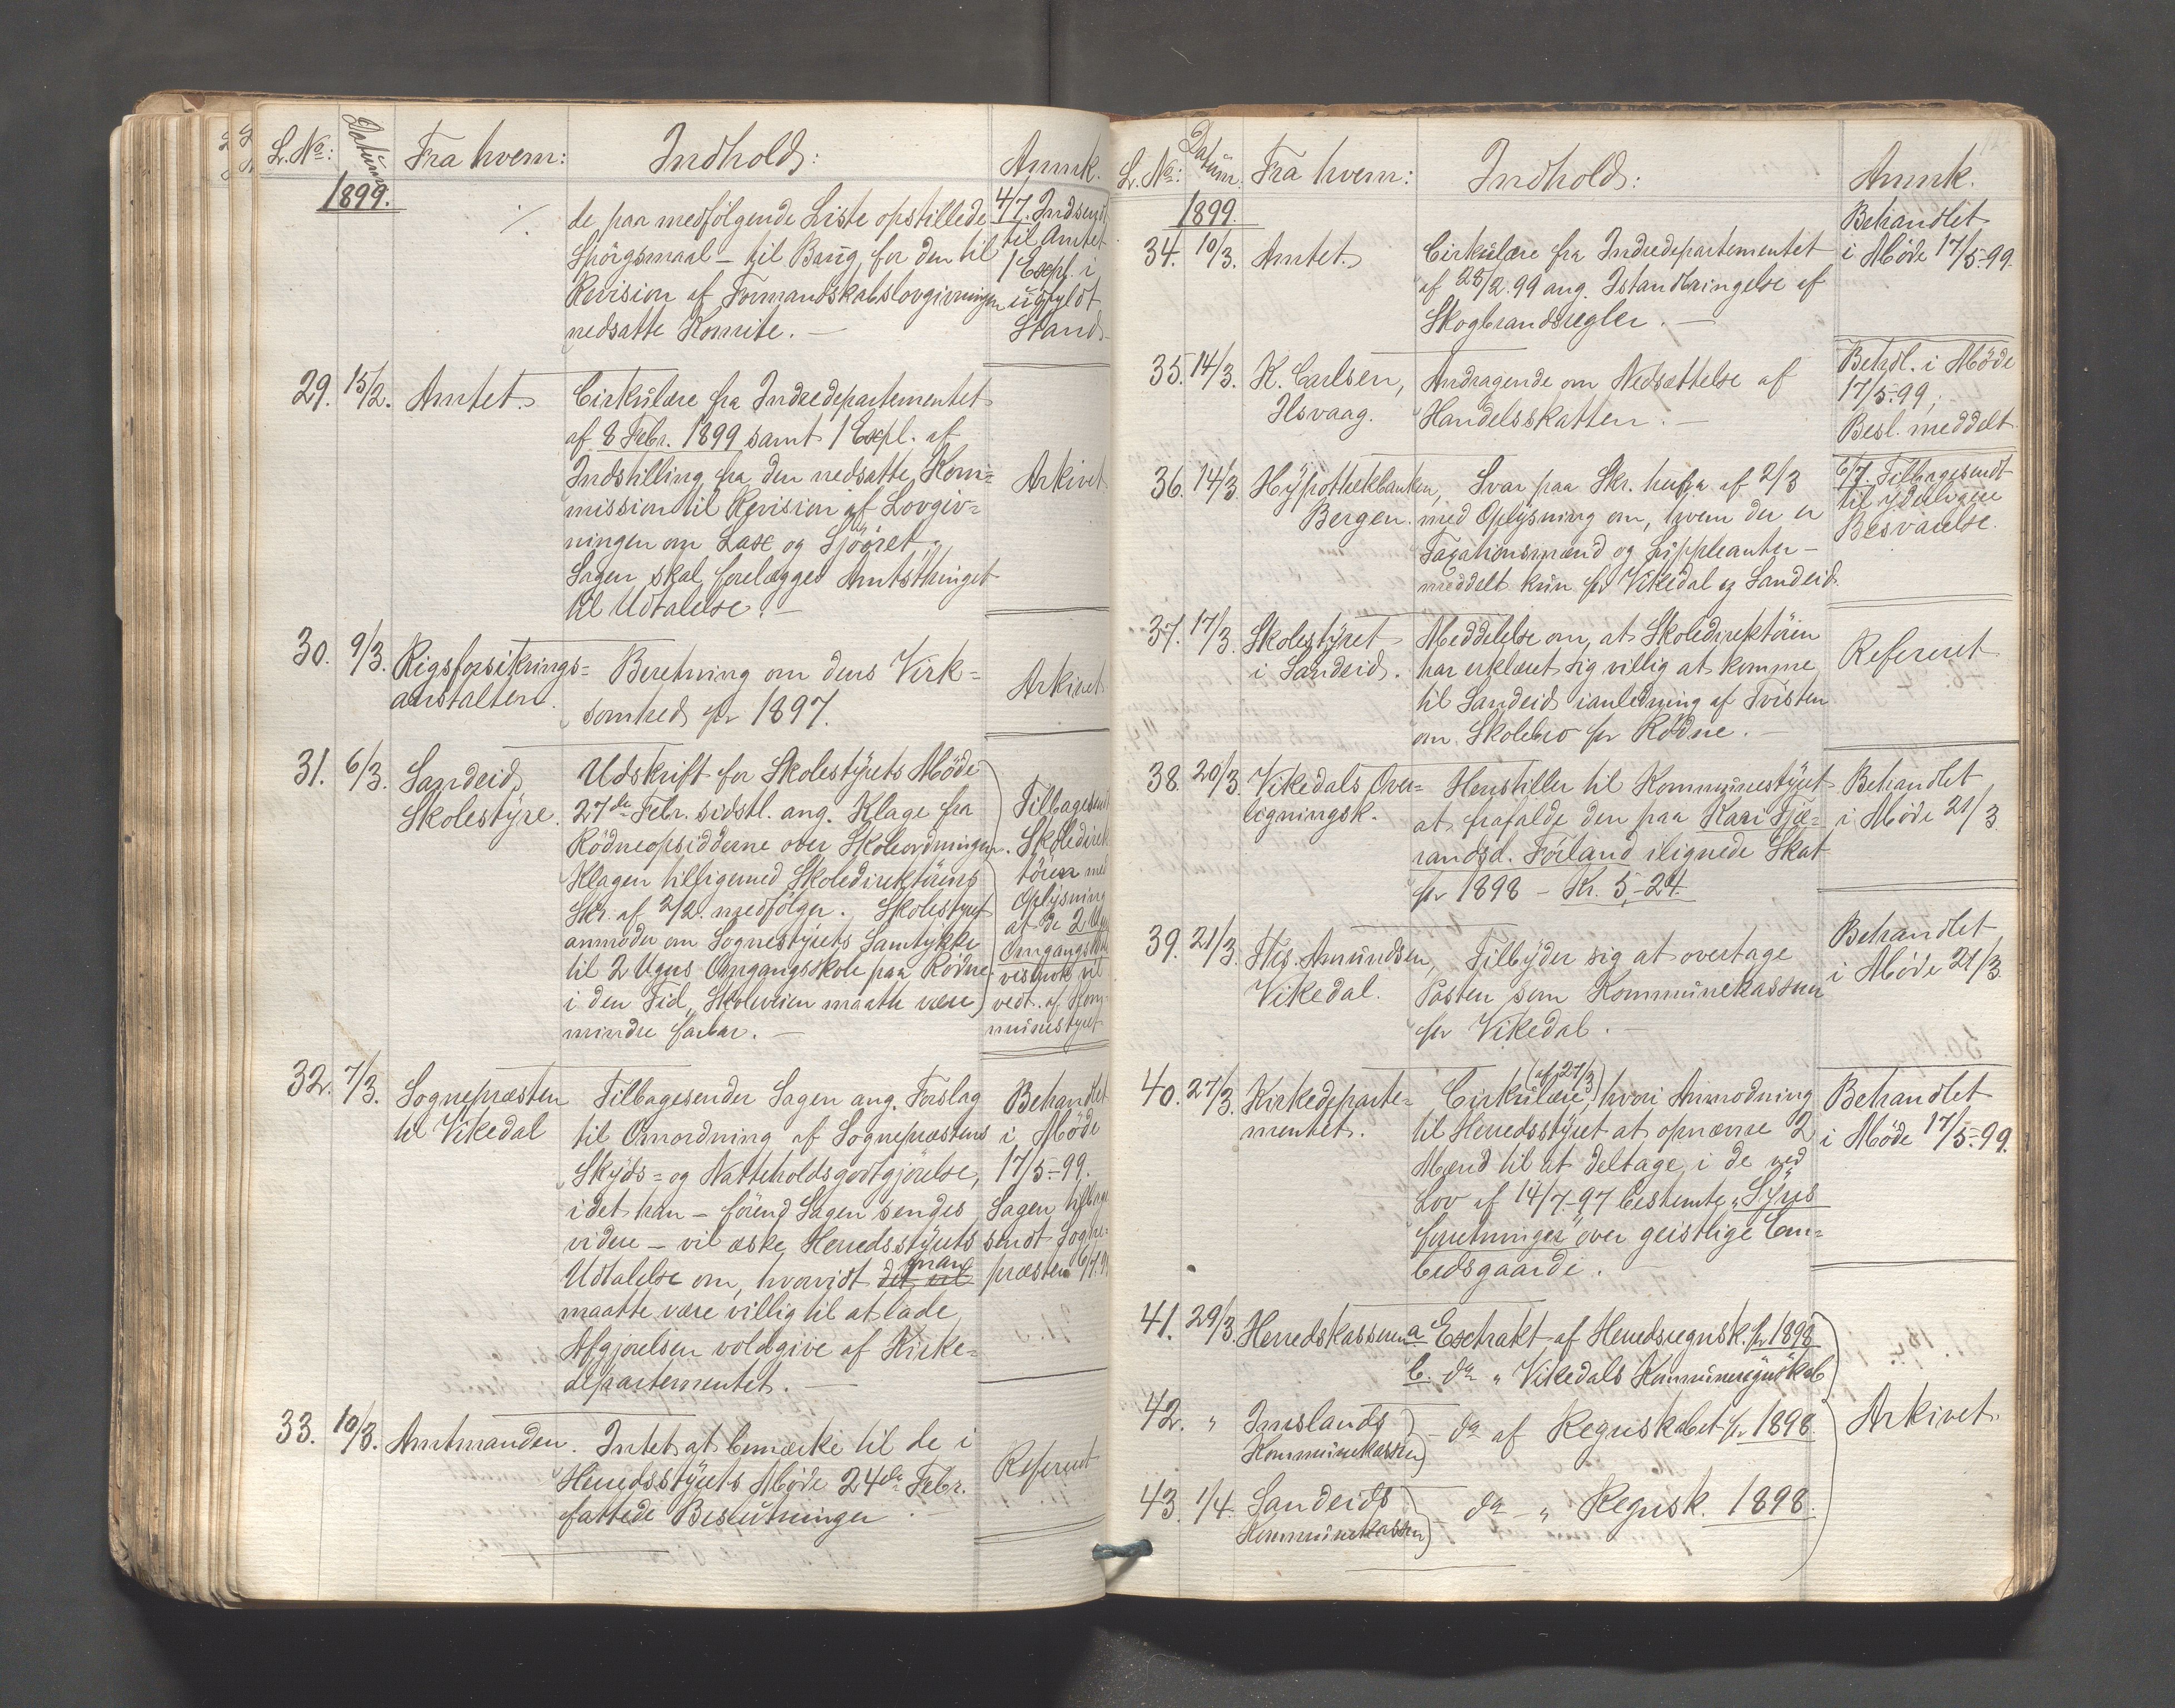 L. No: Datum Fra hvem: Indhold: Anmk.
1899.
de paa medfölgende Liste opstillede
Spörgsmaal – til Brug for den til
Revision af Formandskabslovgivningen
nedsatte Komite. –
4/7. Indsendt
til Amtet
1 Expl. i
udfyldt
Stand
29. 15/2. Amtet. Cirkulære fra Indredepartementet
af 8 Febr. 1899 samt 1 Expl. af
Indstilling fra den nedsatte Kom=
mission til Revision af Lovgiv=
ningen om Laxe og Sjööret.
Sagen skal forelægges Amtsthinget
til Udtalelse. –
Arkivet
30. 9/3. Rigsforsikrings=
anstalten.
Beretning om dens Virk=
somhed for 1897.
Arkivet
31. 6/3. Sandeid
Skolestyre.
Udskrift for Skolestyrets Möde
27de Febr. sidstl. ang. Klage fra
Rödneopsidderne over Skoleordningen.
Klagen tilligemed Skoledirektörens
Skr. af 2/2. medfölger. Skolestyret
anmoder om Sognestyrets Samtykke
til 2 Ugers Omgangsskole paa Rödne
i den Tid, Skoleveien maatte være
mindre farbar. –
Tilbagesendt
Skoledirek
tören med
Oplysning
at de 2 Uger
Omgangsskole
vistnok vil
vedt. af Kom
munestyret
32. 7/3. Sognepræsten
til Vikedal
Tilbagesender Sagen ang. Forslag
til Omordning af Sognepræstens
Skyds= og Natteholdsgodtgjörelse,
idet han – förend Sagen sendes
videre – vil æske Herredsstyrets
Udtalelse om, hvorvidt det vil man
maatte være villig til at lade
Afgjörelsen voldgive af Kirke=
departementet. –
Behandlet
i Möde
17/5-99.
Sagen tilbage
sendt Sogne=
præsten 6/7.99
33. 10/3. Amtmanden. Intet at bemærke til de i
Herredsstyrets Möde 24de Febr.
fattede Beslutninger. –
Refereret
L. No: Datum: Fra hvem: Indhold: Anmk.
1899.
34. 10/3. Amtet. Cirkulære fra Indredepartementet
af 28/2.99 ang. Istandbringelse af
Skogbrandsregler. –
Behandlet
i Möde 17/5-99.
35. 14/3. K. Carlsen,
Ilsvaag.
Andragende om Nedsættelse af
Handelsskatten. –
Behdl. i Möde
17/5-99;
Besl. meddelt
36. 14/3 Hypothekbanken,
Bergen.
Svar paa Skr. herfra af 2/3
med Oplysning om, hvem der er
Taxationsmænd og Suppleanter –
meddelt kun for Vikedal og Sandeid.
6/7. Tilbagesendt
til yderligere
Besvarelse.
37. 17/3. Skolestyret
i Sandeid.
Meddelelse om, at Skoledirektören
har erklæret sig villig at komme
til Sandeid ianledning af Tvisten
om Skolebro for Rödne. –
Refereret
38. 20/3. Vikedals Over=
ligningsk.
Henstiller til Kommunestyret
at frafalde den paa Kari Tjæ=
randsd. Förland ilignede Skat
for 1898 – Kr. 5-24.
Behandlet
i Möde 21/3
39. 21/3. Ths. Amundsen,
Vikedal.
Tilbyder sig at overtage
Posten som Kommunekasserer
for Vikedal. –
Behandlet
i Möde 21/3.
40. 27/3. Kirkedeparte=
mentet.
(af 27/3)
Cirkulære, hvori Anmodning
til Herredsstyret at opnævne 2
Mænd til at deltage i de ved
Lov af 14/7-97 bestemte „Syns
forretninger" over geistlige Em=
bedsgaarde. –
Behandlet
i Möde 17/5-99.
41. 29/3. Herredskasseren a Extrakt af Herredsregnsk. for 1898
b. do „ Vikedals Kommuneregnskab
42. „ Imslands
Kommunekasserer
– do af Regnskabet for 1898.
Arkivet.
43. 1/4. Sandeids
Kommunekasserer
do – „ Regnsk. 1898.